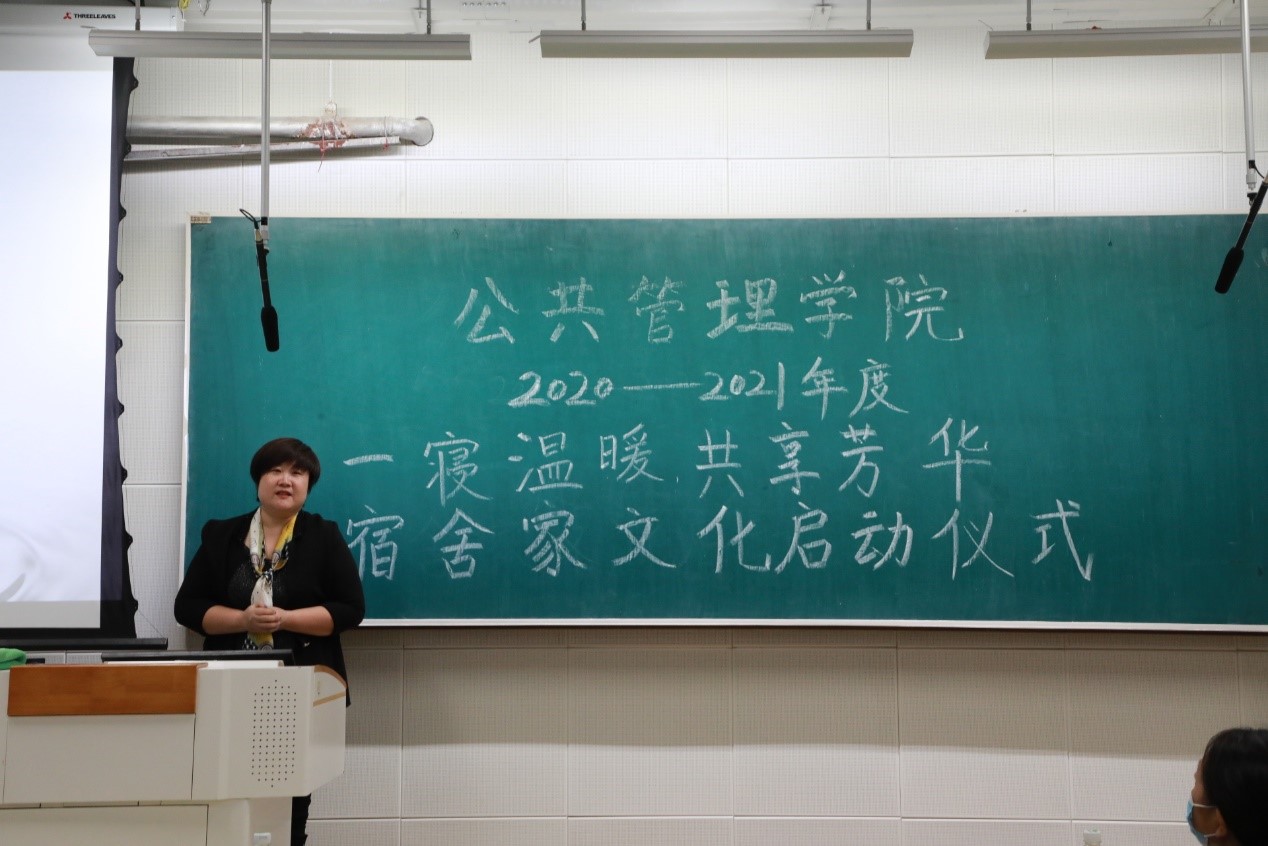 THREELEAVES
公共管理学院
2020——2021年度
一寝温暖,共享芳华
宿舍家文化启动仪式